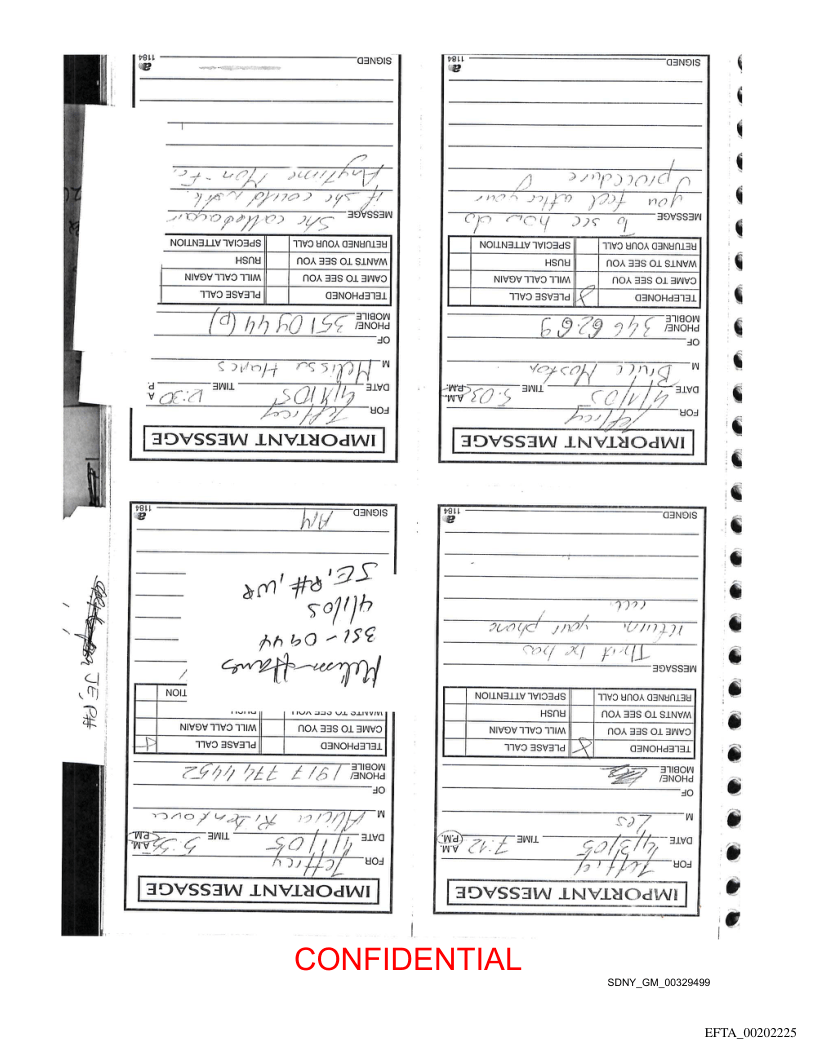 IMPORTANT MESSAGE
FOR Jeffrey
DATE 4/3/05 TIME 7:12 A.M. P.M.
M Les
OF
PHONE/
MOBILE
TELEPHONED PLEASE CALL
CAME TO SEE YOU WILL CALL AGAIN
WANTS TO SEE YOU RUSH
RETURNED YOUR CALL SPECIAL ATTENTION
MESSAGE
That he has
return your phone
cell.
SIGNED
1184
IMPORTANT MESSAGE
FOR Jeffrey
DATE 4/1/05 TIME 5:55 A.M. P.M.
M Alicia
OF
PHONE/
MOBILE 1917 774 4452
TELEPHONED PLEASE CALL
CAME TO SEE YOU WILL CALL AGAIN
WANTS TO SEE YOU RUSH
TION
Melissa Hanes
351-0944
4/1/05
JE, P#, WR
SIGNED
1184
JE, P#
IMPORTANT MESSAGE
FOR Jeffrey
DATE 4/1/05 TIME 5:03 A.M. P.M.
M Bruce
OF
PHONE/
MOBILE 346 6269
TELEPHONED PLEASE CALL
CAME TO SEE YOU WILL CALL AGAIN
WANTS TO SEE YOU RUSH
RETURNED YOUR CALL SPECIAL ATTENTION
MESSAGE To see how do
you feel after your
procedure
SIGNED
1184
IMPORTANT MESSAGE
FOR Jeffrey
DATE 4/1/05 TIME 12:30 A P
M Melissa Hanes
OF
PHONE/
MOBILE 351 0944 (p)
TELEPHONED PLEASE CALL
CAME TO SEE YOU WILL CALL AGAIN
WANTS TO SEE YOU RUSH
RETURNED YOUR CALL SPECIAL ATTENTION
MESSAGE She called again
if she could work
Anytime Mon-Fr.
SIGNED
1184
CONFIDENTIAL
SDNY_GM_00329499
EFTA_00202225